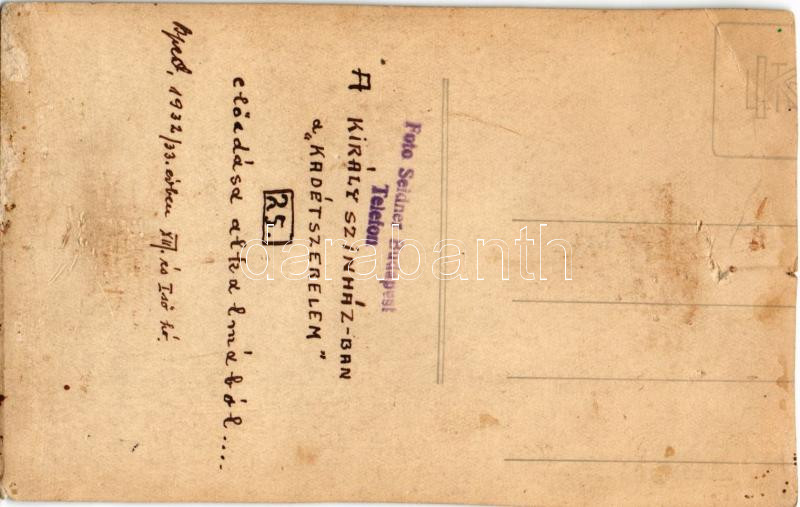 Foto Seidner Budapest
Telefon
A KIRÁLY SZÍNHÁZ-BAN
a „KADÉTSZERELEM"
25.
előadása alkalmából....
Bpest, 1932/33. évben XII. és Iső hó.
darabanth